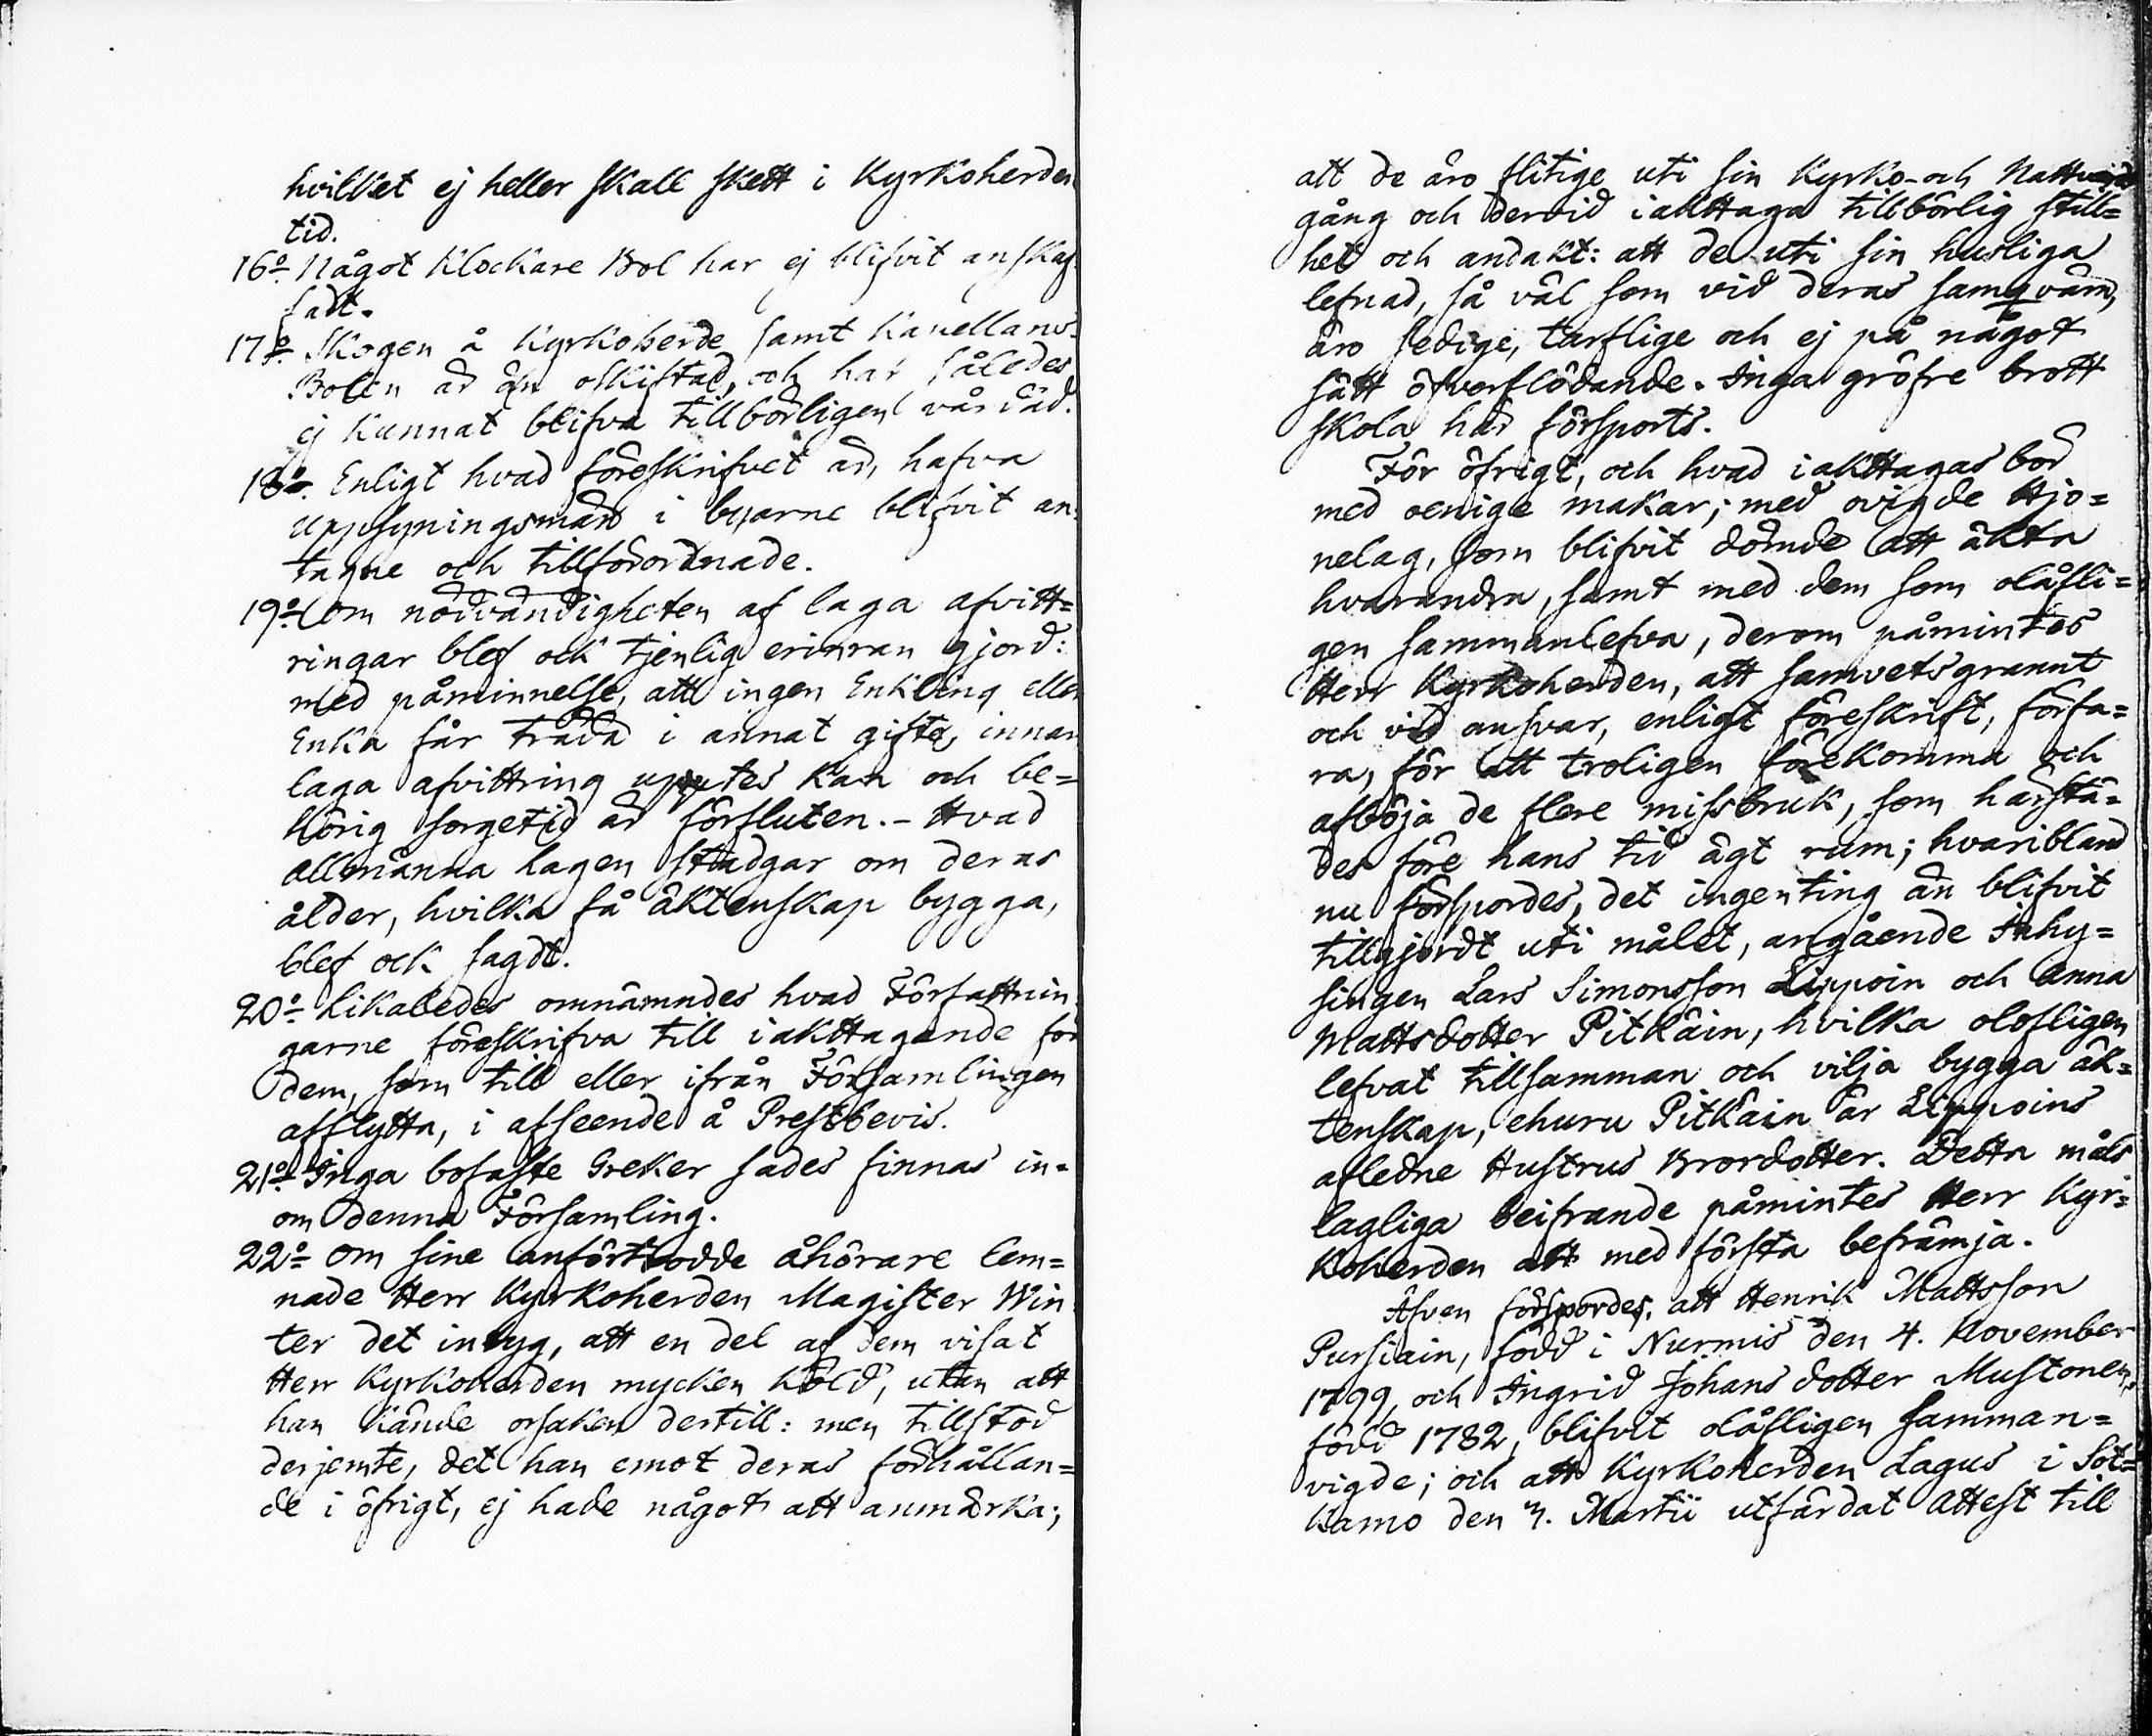 hvilket ej heller skall skett i Kyrkoherden
tid.
16º Något Klockare Bol har ej blifvit anskaf
fadt.
17º Skogen å Kyrkoherde samt Kapellans-
Bolen är än oskiftad, och har således
ej kunnat blifva tillbörligen vårdad.
18º Enligt hvad föreskrifvet är, hafva
uppsyningsmän i byarne blifvit an-
tagne och tillförordnade.
19º Om nödvändigheten af laga afvitt=
ringar blef ock tjenlig erinran gjord:
med påminnelse, att ingen Enkling eller
Enka får träda i annat gifte, innan
laga afvittring uptes kan och be=
hörig sorgetid är förfluten. - Hvad
allmänna Lagen stadgar om deras
ålder, hvilka få äktenskap bygga,
blef ock sagdt.
20º Likaledes omnämndes hvad Författnin
garne föreskrifva till iakttagande för
dem, som till eller ifrån Församlingen
afflytta, i afseende å Prestbevis.
21º Inga bofaste Greker sades finnas in=
om denna Församling.
22º Om sine anförtrodde åhörare lem=
nade Herr Kyrkoherden Magister Win
ter det intyg, att en del af dem visat
Herr Kyrkoherden mycken köld, utan att
han kände orsaken dertill: men tillstod
derjemte, det han emot deras förhållan=
de i öfrigt, ej hade något att anmärka;
att de äro flitige uti sin Kyrko- och Nattvards
gång och dervid iakttaga tillbörlig still=
het och andakt: att de uti sin husliga
lefnad, så väl som vid deras samqväm,
äro sedige, tarflige och ej på något
sätt öfverflödande. Inga gröfre brott
skola här försports.
För öfrigt, och hvad iakttagas bör
med oenige makar; med ovigde Hjo=
nelag, som blifvit dömde att äkta
hvarandra, samt med dem som olåfli=
gen sammanlefva, derom påmintes
Herr Kyrkoherden, att samvetsgrannt
och vid ansvar, enligt föreskrift, förfa=
ra, för att troligen förekomma och
afböja de flere missbruk, som härstä=
des före hans tid ägt rum; hvaribland
nu förspordes, det ingenting än blifvit
tillgjordt uti målet, angående Inhy=
singen Lars Simonsson Lippoin och Anna
Mattsdotter Pitkäin, hvilka olofligen
lefvat tillsamman och vilja bygga äk=
tenskap, ehuru Pitkäin är Lippoins
afledne Hustrus Brordotter. Detta måls
lagliga beifrande påmintes Herr Kyr=
koherden att med första befrämja.
Äfven förspordes, att Henrik Mattsson
Pursiain, född i Nurmis den 4. November
1799, och Ingrid Johans dotter Mustonen,
född 1782, blifvit olåfligen samman=
vigde; och att Kyrkoherden Lagus i Sot=
kamo den 7. Martii utfärdat Attest till